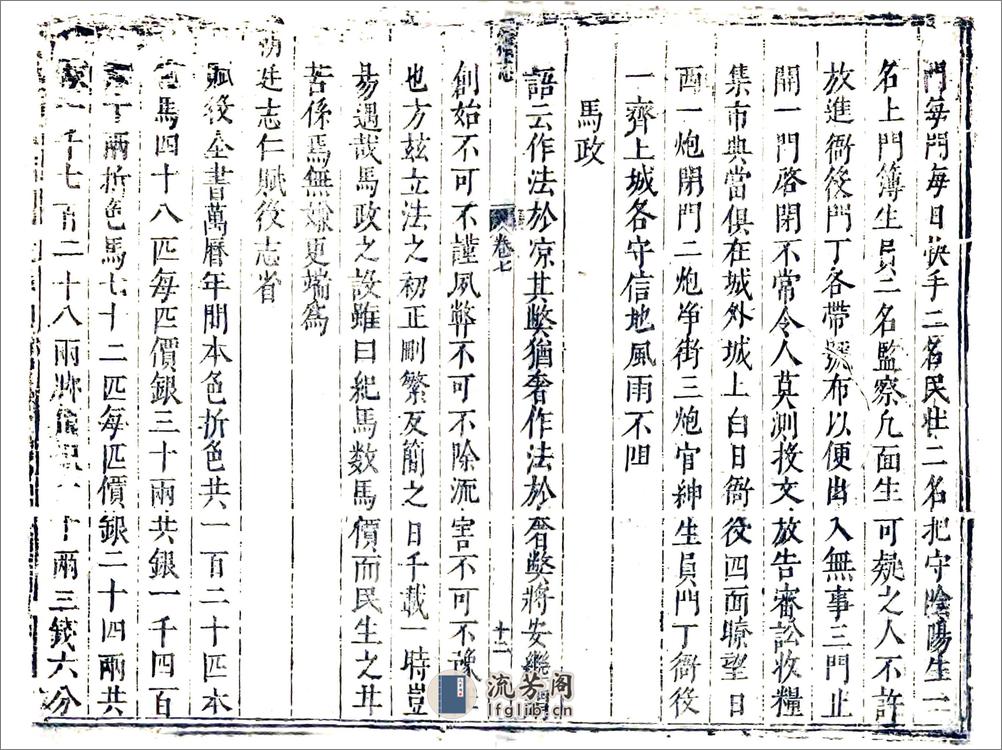 門每門每日快手二名民壯二名把守陰陽生一
名上門簿生員二名監察凢面生可疑之人不許
放進衙役門丁各帶號布以便出入無事三門止
開一門啓閉不常令人莫測投文放告審訟收糧
集市典當俱在城外城上白日衙役四面瞭望日
西一炮閉門二炮净街三炮官紳生員門丁衙役
一齊上城各守信地風雨不阻
馬政
語云作法於凉其獘猶奢作法於奢獘將安
創始不可不謹夙弊不可不除流害不可不豫
也方兹立法之初正刪繁反簡之日千載一時豈
易遇哉馬政之設雖曰紀馬數馬價而民生之甘
苦係馬無嫌更端為
卷七
十二
廷志仁賦役志省
賦役全書萬曆年間本色折色共一百二十匹本
色馬四十八匹每匹價銀三十兩共銀一千四百
十兩折色馬七十二匹每匹價銀二十四兩共
一千七百二十八兩 十兩三錢六分
流芳阁
lfglib.cn